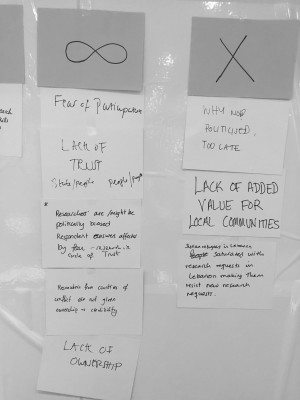 Fear of Participation
LACK OF
TRUST
State/people people/people
* Researcher are/might be
politically biased
Respondent answers affected
by fear - research is
circle of Trust
Researchers from countries of
conflict are not given
ownership + credibility
LACK OF
OWNERSHIP
WHY NOT
POSITIONED,
TOO LATE
LACK OF ADDED
VALUE FOR
LOCAL COMMUNITIES
Syrian refugees in Lebanon
saturated with
research requests in
Lebanon making them
resist new research
requests.